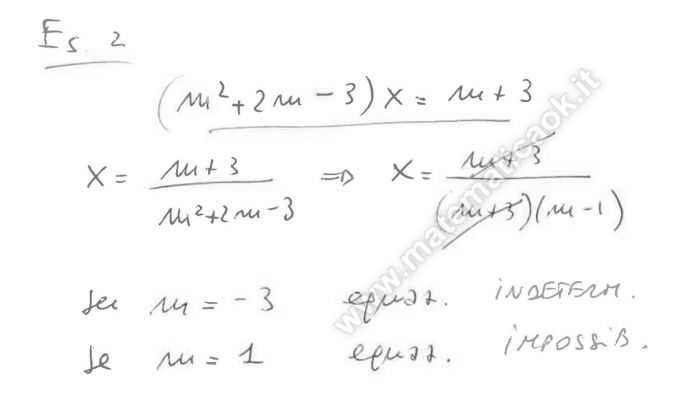 Es. 2
(m²+2m-3)x = m+3
x = (m+3)/(m²+2m-3) ⇒ x = (m+3)/((m+3)(m-1))
Se m = -3 equaz. INDETERM.
Se m = 1 equaz. IMPOSSIB.
www.matematicaok.it